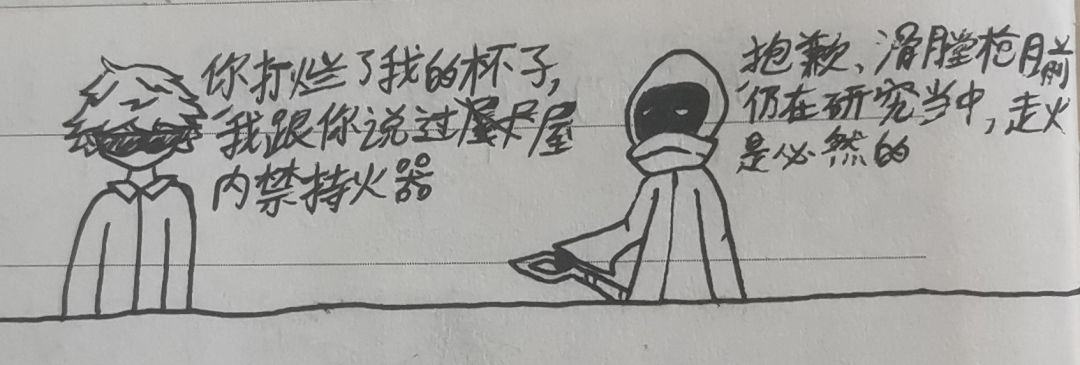 你打烂了我的杯子,
我跟你说过屋
内禁持火器
抱歉、滑膛枪前
仍在研究当中,走火
是必然的